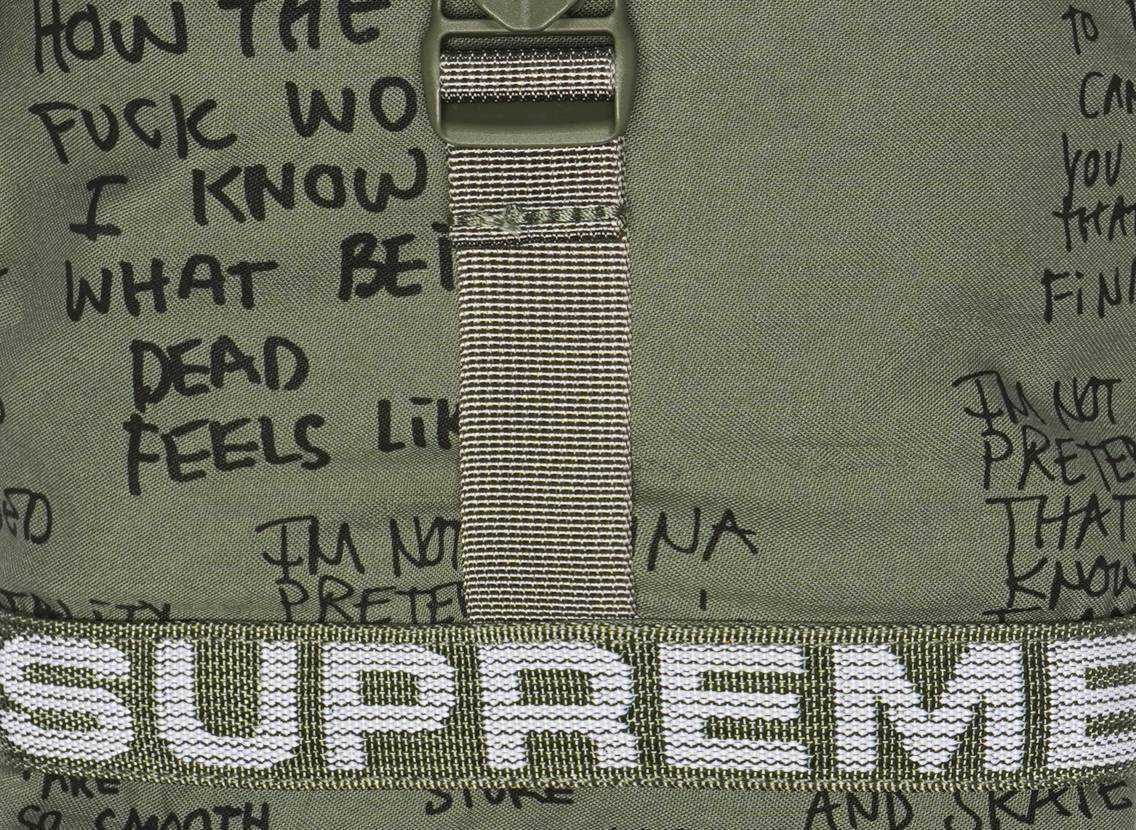 HOW THE
FUCK WO
I KNOW
WHAT BEI
DEAD
FEELS LIK
I'M NOT NA
PRETE
TO
CAN
YOU
THAT
FIN
I'M NOT
PRETE
THAT
KNOW
SUPREME
SO SMOOTH
STORE
AND SKATE